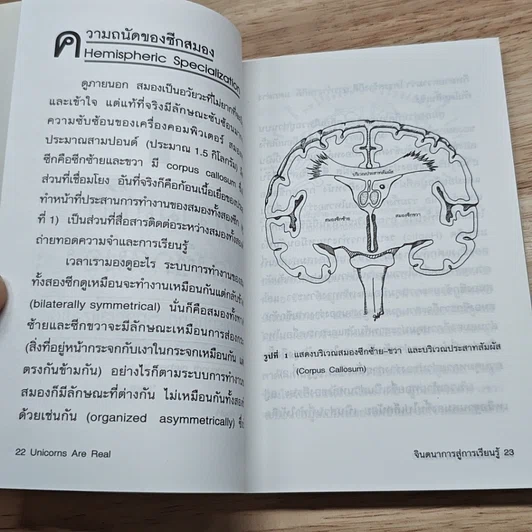 ความถนัดของซีกสมอง
Hemispheric Specialization
ดูภายนอก สมองเป็นอวัยวะที่ไม่ยากที่
และเข้าใจ แต่แท้ที่จริงมีลักษณะซับซ้อน
ความซับซ้อนของเครื่องคอมพิวเตอร์
ประมาณสามปอนด์ (ประมาณ 1.5 กิโลกรัม)
ซีกคือซีกซ้ายและขวา มี corpus callosum
ส่วนที่เชื่อมโยง อันที่จริงก็คือก้อนเนื้อเยื่อ
ทำหน้าที่ประสานการทำงานของสมองทั้งสองซีก
ที่ 1) เป็นส่วนที่สื่อสารติดต่อระหว่างสมองทั้ง
ถ่ายทอดความจำและการเรียนรู้
เวลาเรามองดูอะไร ระบบการทำงานของ
ทั้งสองซีกดูเหมือนจะทำงานเหมือนกันแต่กลับ
(bilaterally symmetrical) นั่นก็คือสมอง
ซ้ายและซีกขวาจะมีลักษณะเหมือนการส่อง
(สิ่งที่อยู่หน้ากระจกกับเงาในกระจกเหมือนกัน
ตรงกันข้ามกัน) อย่างไรก็ตามระบบการทำงาน
สมองก็มีลักษณะที่ต่างกัน ไม่เหมือนกันทั้งสอง
ด้วยเช่นกัน (organized asymmetrically)
22 Unicorns Are Real
บริเวณประสาทสัมผัส
สมองซีกซ้าย
สมองซีกขวา
รูปที่ 1 แสดงบริเวณสมองซีกซ้าย-ขวา และบริเวณประสาทสัมผัส
(Corpus Callosum)
จินตนาการสู่การเรียนรู้ 23